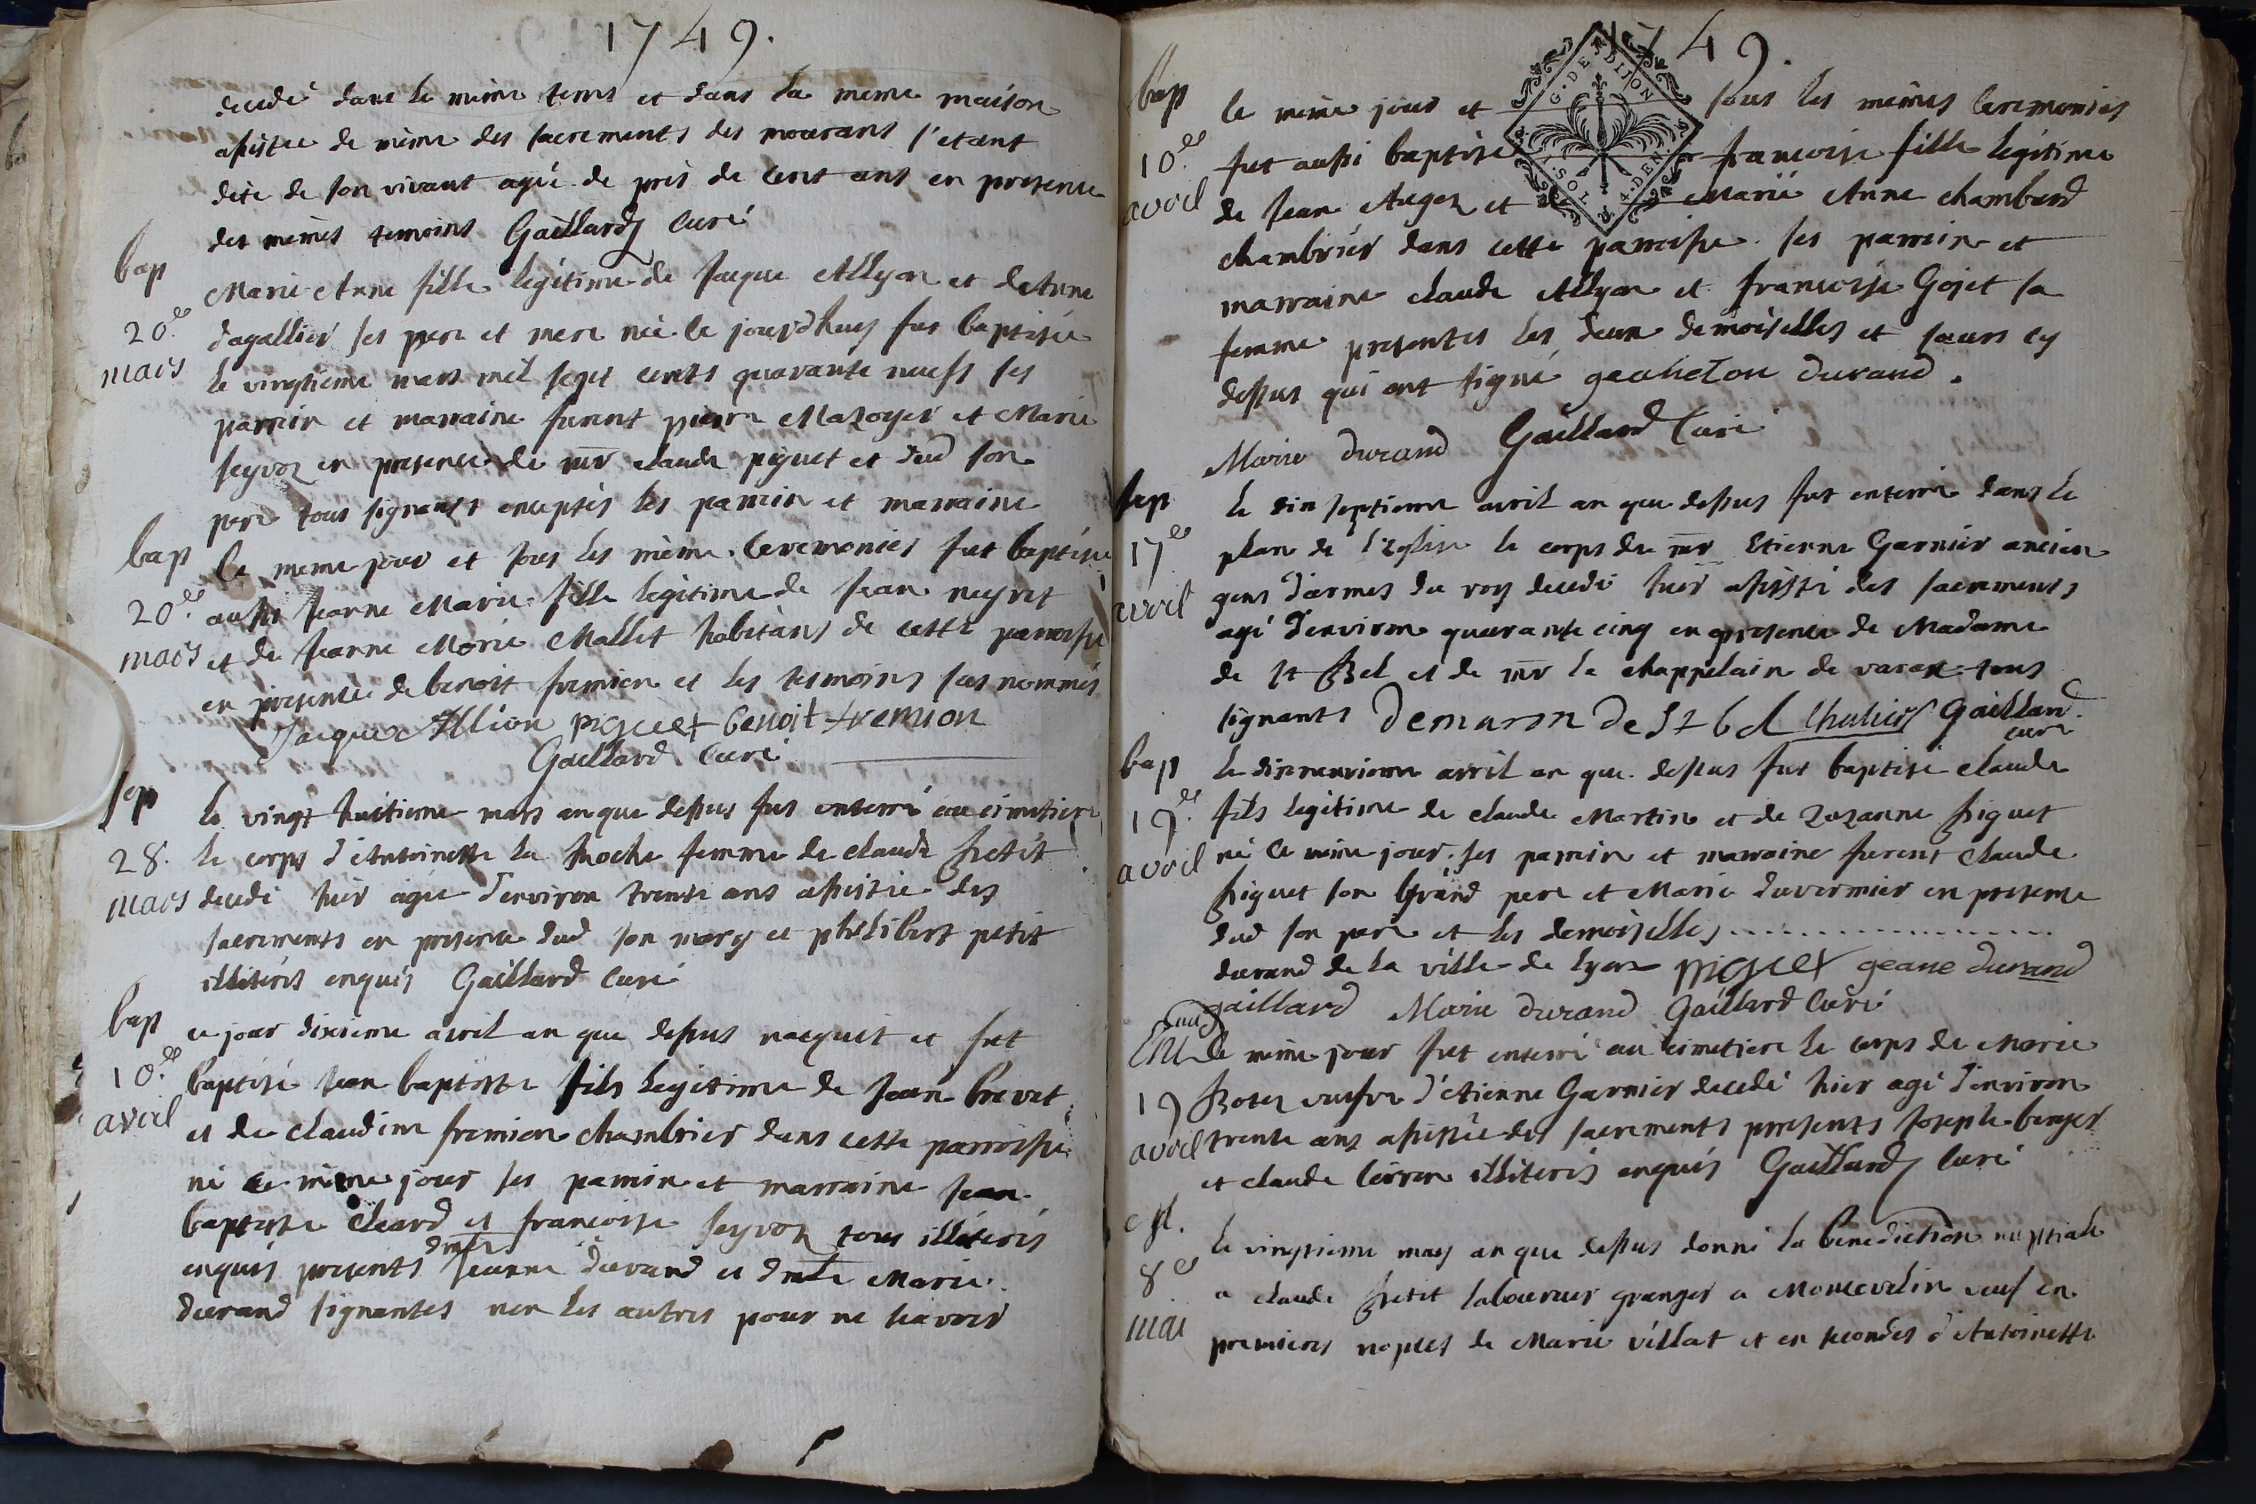 1749.
decedé dans le même tems et dans la meme maison
assistée de même des sacrements des mourans s'etant
dite de son vivant agée de près de cent ans en presence
des mêmes temoins Gaillard curé
bap
20e
mars
Marie Anne fille legitime de Jacque Allyon et de Anne
dagallier ses pere et mere née ce jourdhuy fut baptisée
le vingtieme mars mil sept cents quarante neuf ses
parrein et marraine furent pierre Mazoyer et Marie
seyvoz en presence de mr claude piguet et dud son
pere tous signants exceptés les parrein et marraine
bap
20e
mars
Ce meme jour et sous les même Ceremonies fut baptisée
aussi Jeanne Marie fille legitime de Jean neyret
et de Jeanne Marie Mallet habitans de cette parroisse
en presence de benoit fremion et les tesmoins sus nommés
Jacque Allion piguet benoit fremion
Gaillard Curé
sep
28.
mars
le vingt huitieme mars an que dessus fut enterré au cimetiere
le corps d'Antoinette la Roche femme de claude Petit
decedé hier agée d'environ trente ans assistée des
sacrements en presence dud son mary et philibert petit
illiterés enquis Gaillard Curé
bap
10e
avril
ce jour dixieme avril an que dessus nacquit et fut
baptisé Jean baptiste fils legitime de Jean brevet
et de claudine fremion chambrier dans cette parroisse
né ce même jour ses parrin et marraine Jean
baptiste cleard et francoise seyvoz tous illiterés
enquis presents dmlle Jeanne durand et dmlle Marie
durand signantes non les autres pour ne scavoir
1749.
G. DE DIJON
1. SOL 4. DEN.
bap
10e
avril
le même jour et sous les mêmes Ceremonies
fut aussi baptisé francoise fille legitime
de Jean Auger et de Marie Anne chambard
chambrier dans cette parroisse ses parrein et
marraine claude Allyon et francoise Gojet sa
femme presentes les deux demoiselles et soeurs cy
dessus qui ont signé geanneton durand.
Marie durand Gaillard Curé
sep
17e
avril
le dix septieme avril an que dessus fut enterré dans le
plan de l'Eglise le corps de mr Etienne Garnier ancien
gens d'armes du roy decedé hier assisté des sacrements
agé d'environ quarante cinq en presence de Madame
de st Bel et de mr le chappelain de varax tous
signants demaron de st bel Gaillard
curé
bap
19e
avril
le dixneuvieme avril an que dessus fut baptisé claude
fils legitime de claude Martin et de Zuzanne Piguet
né ce même jour. ses parrein et marraine furent claude
Piguet son Grand pere et Marie duvernier en presence
dud son pere et les demoiselles
durand de la ville de lyon piguet geane durand
gaillard Marie durand Gaillard Curé
19
avril
le même jour fut enterré au cimetiere le corps de Marie
veufve d'etienne Garnier decedé hier agé d'environ
trente ans assistée des sacrements presents Joseph berger
et claude illiterés enquis Gaillard Curé
8e
mai
le vingtieme may an que dessus donné la benediction nuptiale
a claude Petit laboureur granger a Moncevelin veuf en
premieres nopces de Marie villat et en secondes d'Antoinette